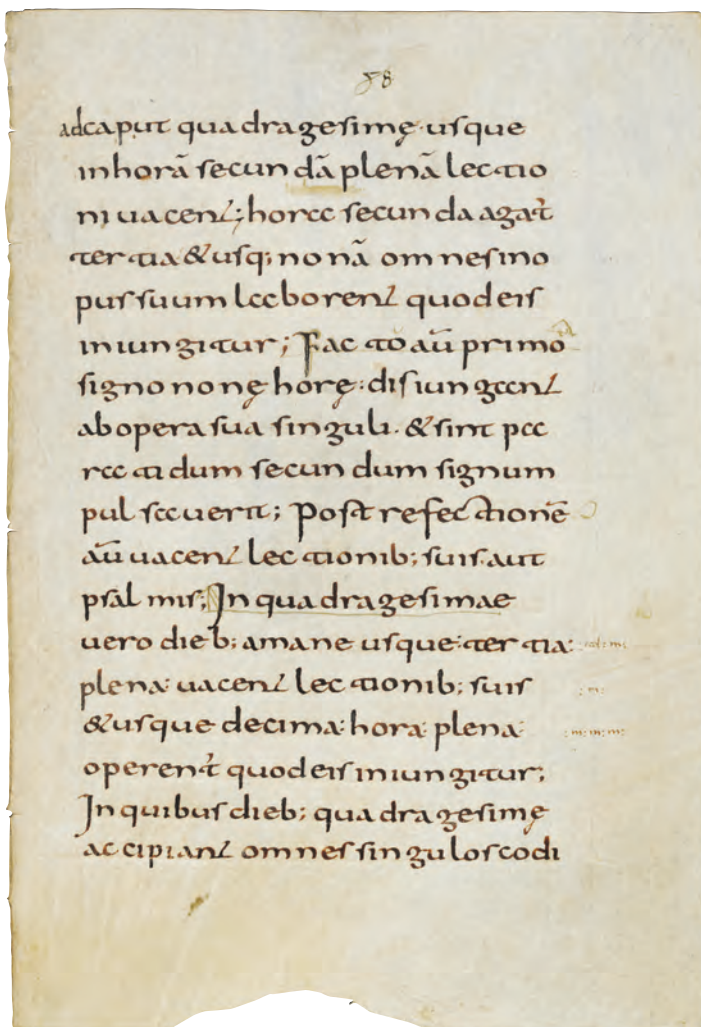 78
adcaput quadragesimę usque
inhorā secundā plenā lectio
ni uacent; hora secunda agat̄
tertia & usq; nonā omnes ino
pus suum laborent quodeis
iniungitur; Facto aū primo
signo nonę horę· disiungant
abopera sua singuli· & sint pa
rati dum secundum signum
pulsauerit; Post refectionē
aū uacent lectionib; suis· aut
psalmis; In quadragesimae
uero dieb; amane usque tertia:
plena· uacent lectionib; suis
& usque decima· hora· plena·
operent̄ quodeis iniungitur;
In quibus dieb; quadragesimę
accipiant omnes singulos codi